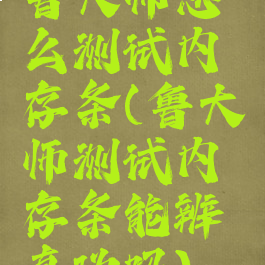 鲁大师怎
么测试内
存条(鲁大
师测试内
存条能辨